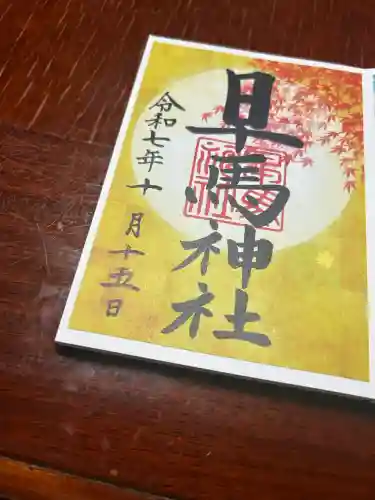 早馬神社
令和七年十月十五日